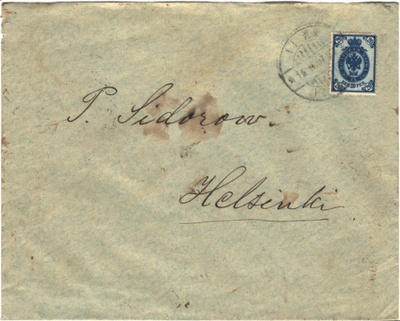 P. Sidorow.
Helsinki